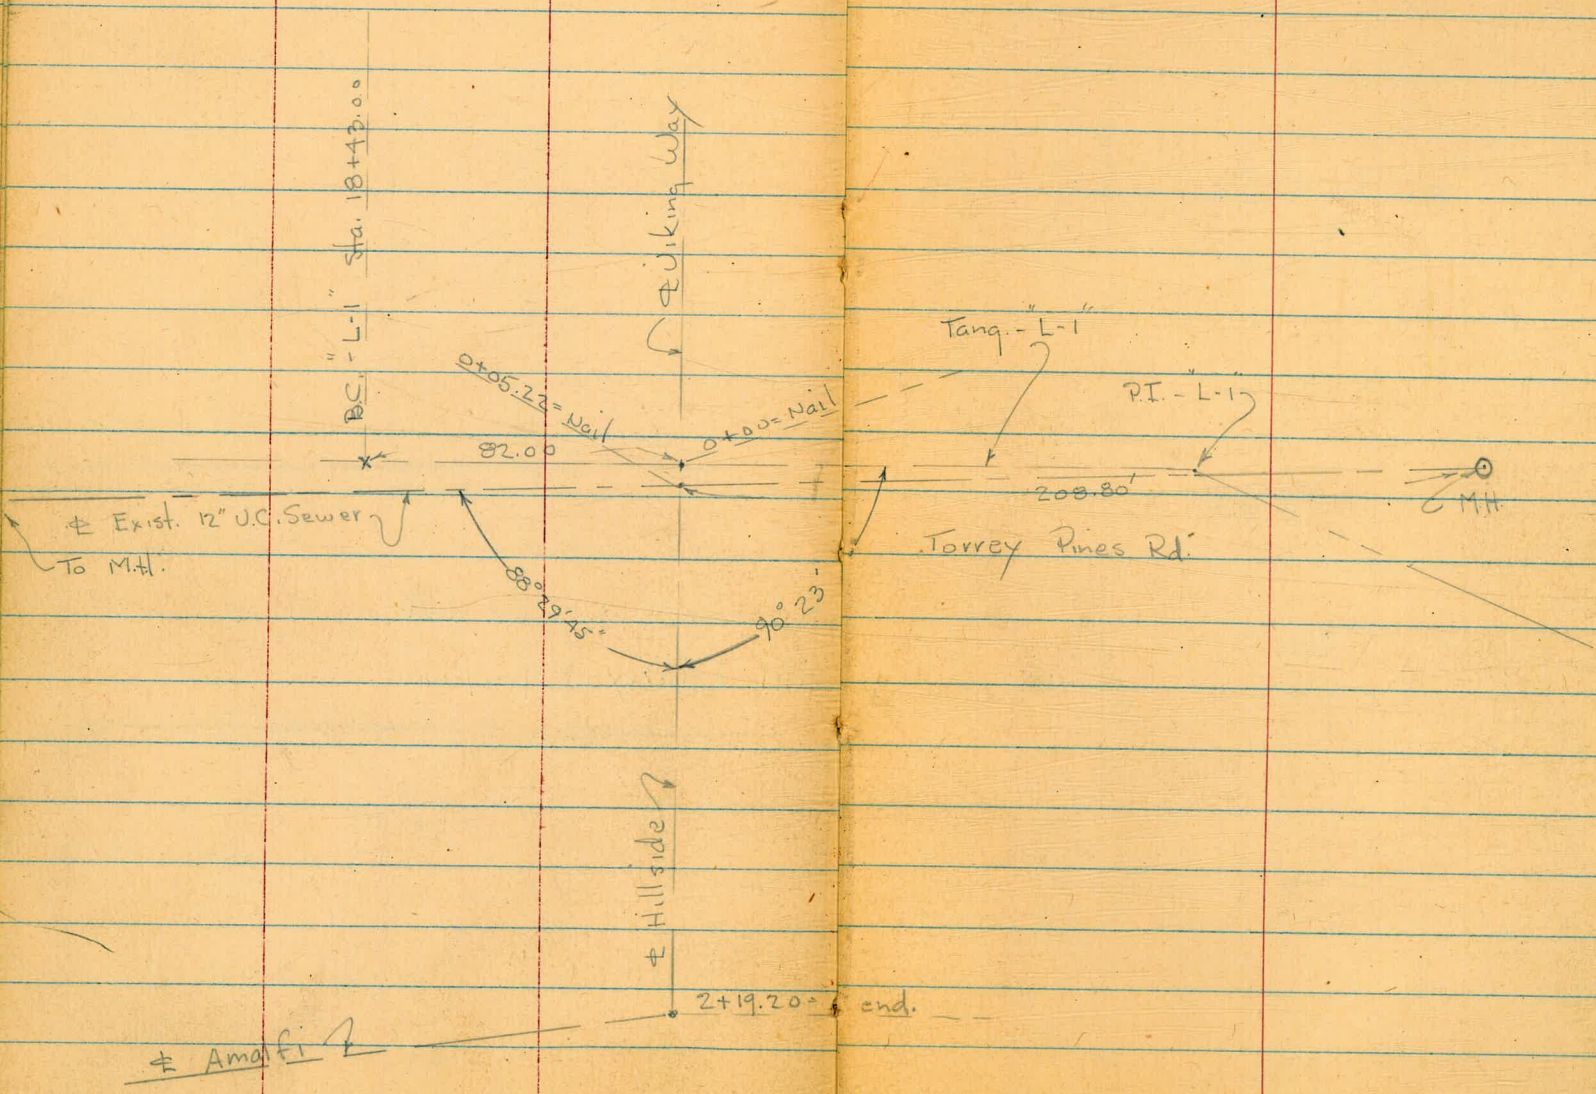 B.C. - "L-1" Sta. 18+43.00
℄ Viking Way
Tang. - "L-1"
P.I. - "L-1"
0+05.22 = Nail
0+00 = Nail
82.00
208.80'
M.H.
℄ Exist. 12" V.C. Sewer
To M.H.
Torrey Pines Rd.
88° 29' 45"
90° 23'
℄ Hillside
2+19.20 = end.
℄ Amalfi